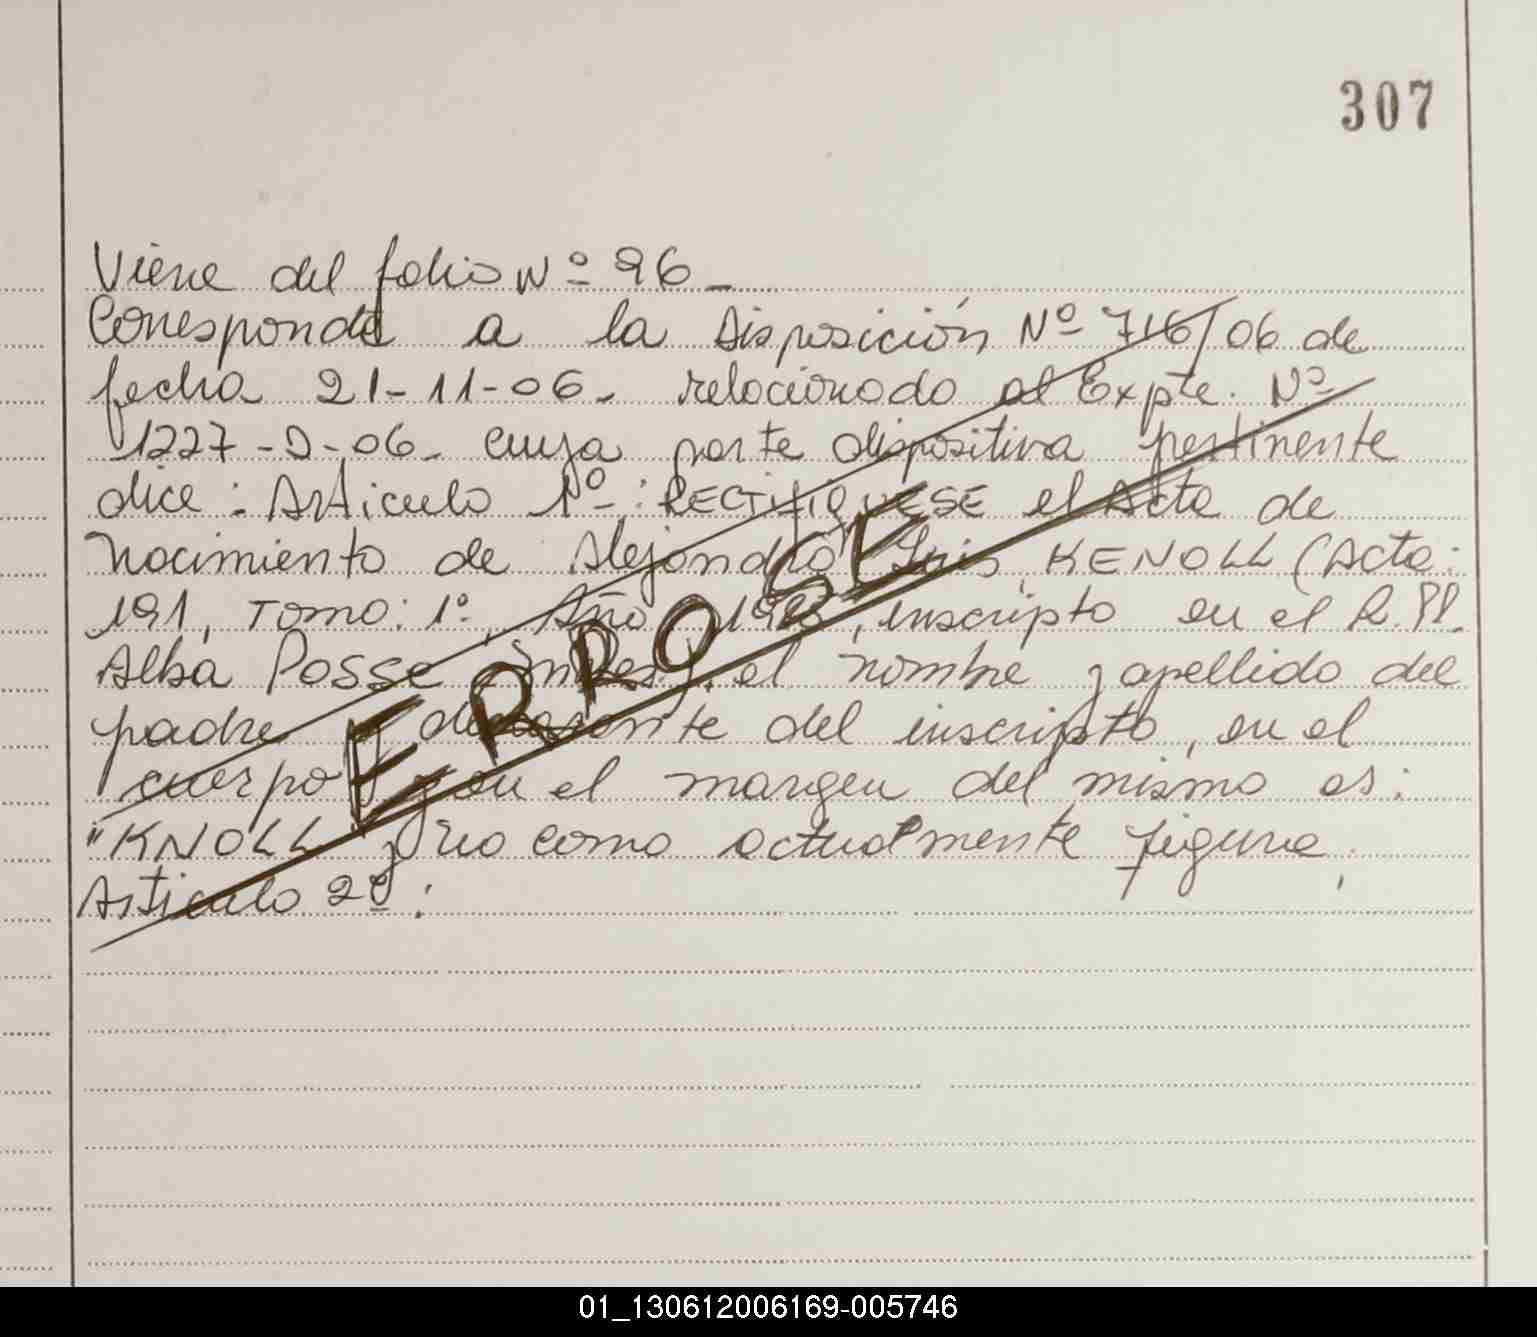 307
Viene del folio Nº 96 -
Corresponde a la Disposición Nº 716/06 de
fecha 21-11-06- relacionado al Expte. Nº
1227-D-06- cuya parte dispositiva pertinente
dice: Articulo 1º-: RECTIFIQUESE el Acta de
Nacimiento de Alejandro Luis KENOLL (Acta:
191, Tomo: 1º, Año inscripto en el R.PP.
Alba Posse el nombre y apellido del
padre y declarante del inscripto, en el
cuerpo y en el margen del mismo es:
"KNOLL y no como actualmente figura,
Articulo 2º:
ERROSE
01_130612006169-005746